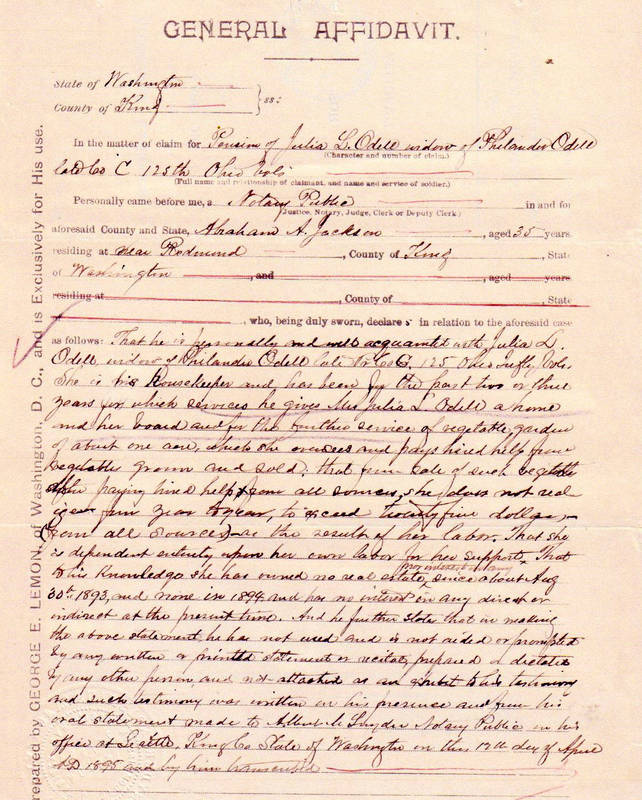 GENERAL AFFIDAVIT.
State of Washington
County of King } ss:
In the matter of claim for Pension of Julia L. Odell widow of Philander Odell
(Character and number of claim.)
late Co "C" 125th Ohio Vols
(Full name and relationship of claimant, and name and service of soldier.)
Personally came before me, a Notary Public in and for
(Justice, Notary, Judge, Clerk or Deputy Clerk.)
aforesaid County and State, Abraham A. Jackson, aged 35 years
residing at near Redmond, County of King, State
of Washington, and, aged years
residing at, County of, State
, who, being duly sworn, declare s in relation to the aforesaid case
as follows: That he is personally and well acquainted with Julia L.
Odell, widow of Philander Odell late of Co C, 125 Ohio Infty Vols.
She is his Housekeeper and has been for the past two or three
years for which services he gives Mrs Julia L. Odell a home
and her board and for the further service of vegetable garden
of about one acre, which she oversees and pays hired help from
vegetables grown and sold. That from sale of such vegetables
after paying hired help & from all sources, she does not real
ize from year to year, to exceed twenty five dollars,
(from all sources) as the result of her labor. That she
is dependent entirely upon her own labor for her support. That
nor interest in any
to his knowledge she has owned no real estate, since about Aug
30th 1893, and none in 1894 and has no interest in any direct or
indirect at the present time. And he further state that in making
the above statement he has not used and is not aided or prompted
by any written or printed statement or recital, prepared or dictated
by any other person, and not attached as an exhibit to his testimony
and such testimony was written in his presence and from his
oral statement made to Albert M. Snyder Notary Public in his
office at Seattle, King Co State of Washington on this 12th day of April
AD 1895 and by him transcribed
repared by GEORGE E. LEMON, of Washington, D. C., and is Exclusively for His use.